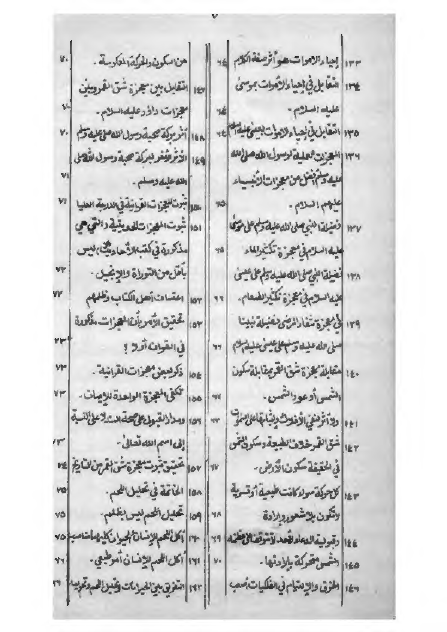 ٧
١٣٣ إحياء الأموات هو أثر صفة الكلام ٦٤
١٣٤ التقابل في إحياء الأموات بموسى
عليه السلام . ٦٤
١٣٥ التقابل في إحياء الأموات بعيسى عليه السلام ٦٤
١٣٦ المعجزات العملية لرسول الله صلى الله
عليه وسلم أفضل من معجزات الأنبياء
عليهم السلام . ٦٥
١٣٧ فضيلة النبي صلى الله عليه وسلم على موسى
عليه السلام في معجزة تكثير الماء ٦٥
١٣٨ فضيلة النبي صلى الله عليه وسلم على عيسى
عليه السلام في معجزة تكثير الطعام . ٦٦
١٣٩ في معجزة شفاء المرضى فضيلة نبينا
صلى الله عليه وسلم على عيسى عليه السلام ٦٦
١٤٠ مقابلة معجزة شق القمر بمقابلة سكون
الشمس أو عود الشمس . ٦٦
١٤١
١٤٢ شق القمر خلاف الطبيعة وسكون الشمس
في الحقيقة سكون الأرض . ٦٧
١٤٣ كل حركة سواء كانت طبيعية أو قسرية
لا تكون بلا شعور وإرادة ٦٨
١٤٤ ٦٩
١٤٥ الشمس متحركة بإرادتها . ٧٠
١٤٦ الخرق والالتيام في الفلكيات
من سكون والحركة المعكوسة . ٧٠
١٤٧ التقابل بين معجزة شق القمر وبين
معجزات داؤد عليه السلام .
١٤٨ أثر بركة صحبة رسول الله صلى الله عليه وسلم ٧٠
١٤٩ بركة صحبة رسول الله صلى
الله عليه وسلم . ٧١
١٥٠ ثبوت المعجزات القرآنية في الدرجة العليا ٧١
١٥١ ثبوت المعجزات الحديثية والتي هي
مذكورة في كتب الأحاديث ليس
بأقل من التوراة والإنجيل . ٧٢
١٥٢ اعتساف أهل الكتاب وظلمهم ٧٢
١٥٣ تحقيق الأمر بأن المعجزات مذكورة
في القرآن أولا ؟ ٧٣
١٥٤ ذكر بعض معجزات القرآنية . ٧٣
١٥٥ تكفي المعجزة الواحدة للإيمان . ٧٣
١٥٦
إلى اسم الله تعالى . ٧٣
١٥٧ تحقيق ثبوت معجزة شق القمر من التاريخ ٧٤
١٥٨ الخاتمة في تحليل اللحم . ٧٥
١٥٩ تحليل اللحم ليس بظلم . ٧٥
١٦٠ أكل اللحم للإنسان ٧٥
١٦١ أكل اللحم للإنسان أمر طبيعي . ٧٦
١٦٢ التفريق بين الحيوانات وتحليل اللحم وتحريمه ٧٦